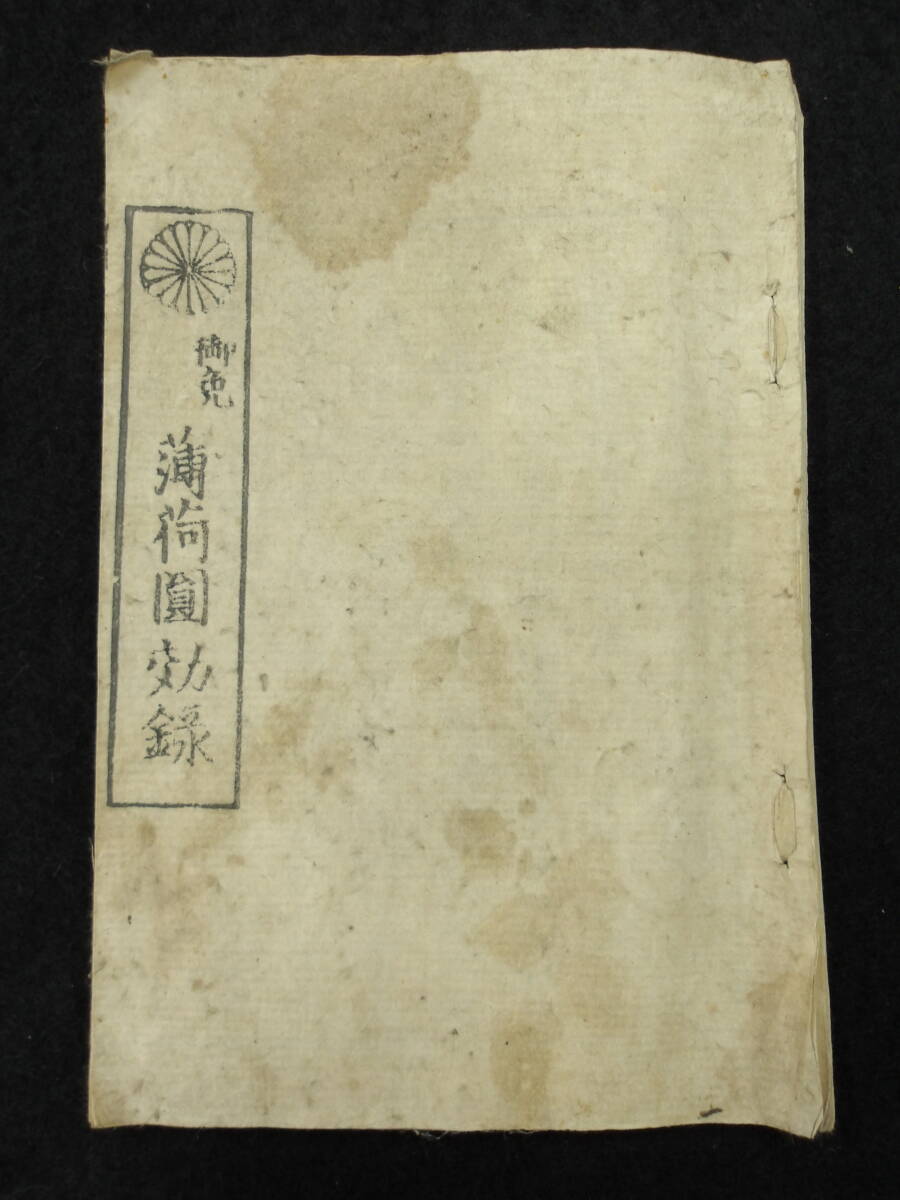 御免
薄荷圓効録